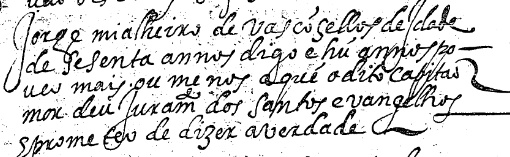 Jorge mialheiro de vascõsellos de idade
de sesenta annos digo e hũ annos po
uco mais ou menos a que o dito capitão
mor deu juram.to dos santos evangelhos
e prometeo de dizer a verdade